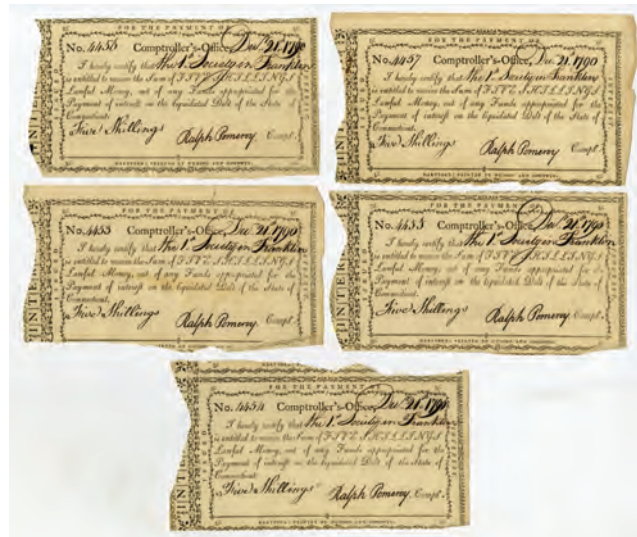 FOR THE PAYMENT OF
No. 4456 Comptroller's-Office, Dec. 21. 1790
I hereby certify that The 1st Society in Franklin
is entitled to receive the Sum of FIVE SHILLINGS
Lawful Money, out of any Funds appropriated for the
Payment of interest on the liquidated Debt of the State of
Connecticut.
Five Shillings Ralph Pomeroy Compt.
HARTFORD: PRINTED BY HUDSON AND GOODWIN.
INTER
FOR THE PAYMENT OF
No. 4457 Comptroller's-Office, Dec. 21. 1790
I hereby certify that The 1st Society in Franklin
is entitled to receive the Sum of FIVE SHILLINGS
Lawful Money, out of any Funds appropriated for the
Payment of interest on the liquidated Debt of the State of
Connecticut.
Five Shillings Ralph Pomeroy Compt.
HARTFORD: PRINTED BY HUDSON AND GOODWIN.
INTE
FOR THE PAYMENT OF
No. 4455 Comptroller's-Office, Dec. 21. 1790
I hereby certify that The 1st Society in Franklin
is entitled to receive the Sum of FIVE SHILLINGS
Lawful Money, out of any Funds appropriated for the
Payment of interest on the liquidated Debt of the State of
Connecticut.
Five Shillings Ralph Pomeroy Compt.
INTE
FOR THE PAYMENT OF
No. 4453 Comptroller's-Office, Dec. 21. 1790
I hereby certify that The 1st Society in Franklin
is entitled to receive the Sum of FIVE SHILLINGS
Lawful Money, out of any Funds appropriated for the
Payment of interest on the liquidated Debt of the State of
Connecticut.
Five Shillings Ralph Pomeroy Compt.
INTER
FOR THE PAYMENT OF
No. 4454 Comptroller's-Office, Dec. 21. 1790
I hereby certify that The 1st Society in Franklin
is entitled to receive the Sum of FIVE SHILLINGS
Lawful Money, out of any Funds appropriated for the
Payment of interest on the liquidated Debt of the State of
Connecticut.
Five Shillings Ralph Pomeroy Compt.
HARTFORD: PRINTED BY HUDSON AND GOODWIN.
INT